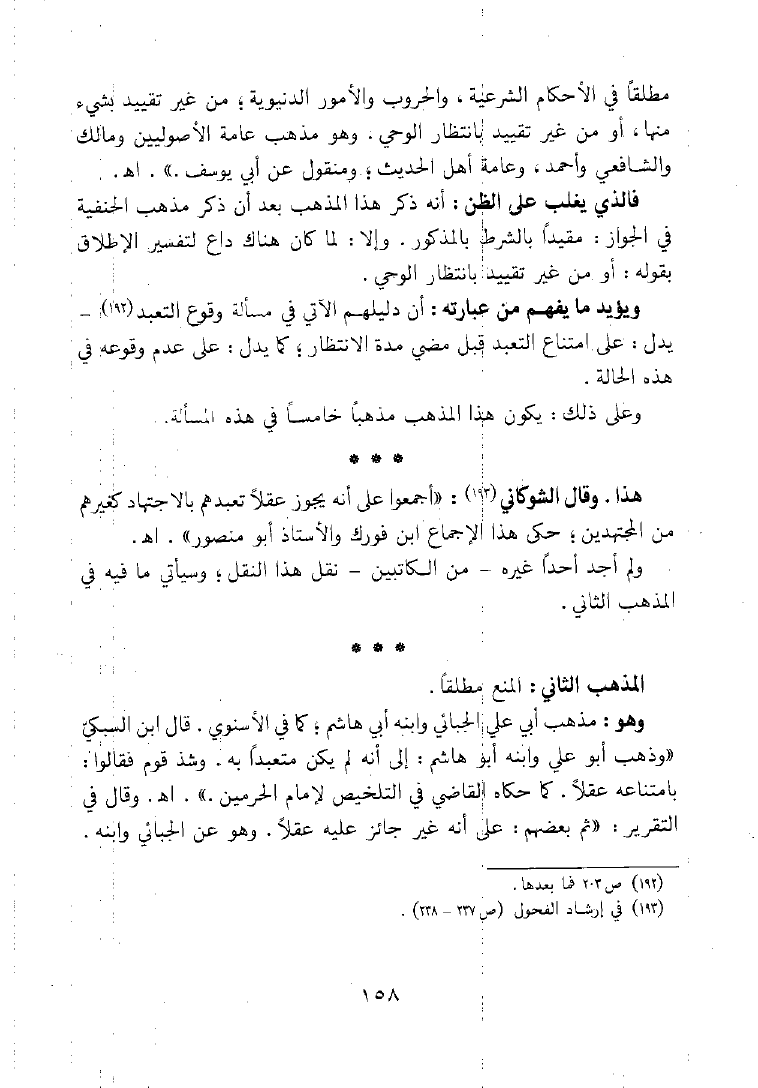 مطلقاً في الأحكام الشرعية ، والحروب والأمور الدنيوية ؛ من غير تقييد بشيء
منها ، أو من غير تقييد بانتظار الوحي . وهو مذهب عامة الأصوليين ومالك
والشافعي وأحمد ، وعامة أهل الحديث ؛ ومنقول عن أبي يوسف .» . اهـ .
فالذي يغلب على الظن : أنه ذكر هذا المذهب بعد أن ذكر مذهب الحنفية
في الجواز : مقيداً بالشرط بالمذكور . وإلا : لما كان هناك داع لتفسير الإطلاق
بقوله : أو من غير تقييد بانتظار الوحي .
ويؤيد ما يفهم من عبارته : أن دليلهم الآتي في مسألة وقوع التعبد (١٩٢) –
يدل : على امتناع التعبد قبل مضي مدة الانتظار ؛ كما يدل : على عدم وقوعه في
هذه الحالة .
وعلى ذلك : يكون هذا المذهب مذهباً خامساً في هذه المسألة .
* * *
هذا . وقال الشوكاني (١٩٣) : «أجمعوا على أنه يجوز عقلاً تعبدهم بالاجتهاد كغيرهم
من المجتهدين ؛ حكى هذا الإجماع ابن فورك والأستاذ أبو منصور» . اهـ .
ولم أجد أحداً غيره – من الكاتبين – نقل هذا النقل ؛ وسيأتي ما فيه في
المذهب الثاني .
* * *
المذهب الثاني : المنع مطلقاً .
وهو : مذهب أبي علي الجبائي وابنه أبي هاشم ؛ كما في الأسنوي . قال ابن السبكيّ
«وذهب أبو علي وابنه أبو هاشم : إلى أنه لم يكن متعبداً به . وشذ قوم فقالوا :
بامتناعه عقلاً . كما حكاه القاضي في التلخيص لإمام الحرمين .» . اهـ . وقال في
التقرير : «ثم بعضهم : على أنه غير جائز عليه عقلاً . وهو عن الجبائي وابنه .
(١٩٢) ص ٢٠٣ فما بعدها .
(١٩٣) في إرشاد الفحول (ص ٢٣٧ – ٢٣٨) .
١٥٨